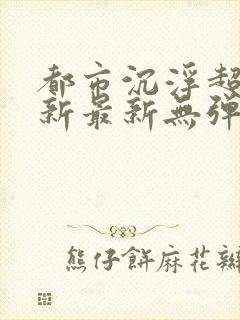 都市沉浮超
新最新無弹
熊仔餅麻花辮